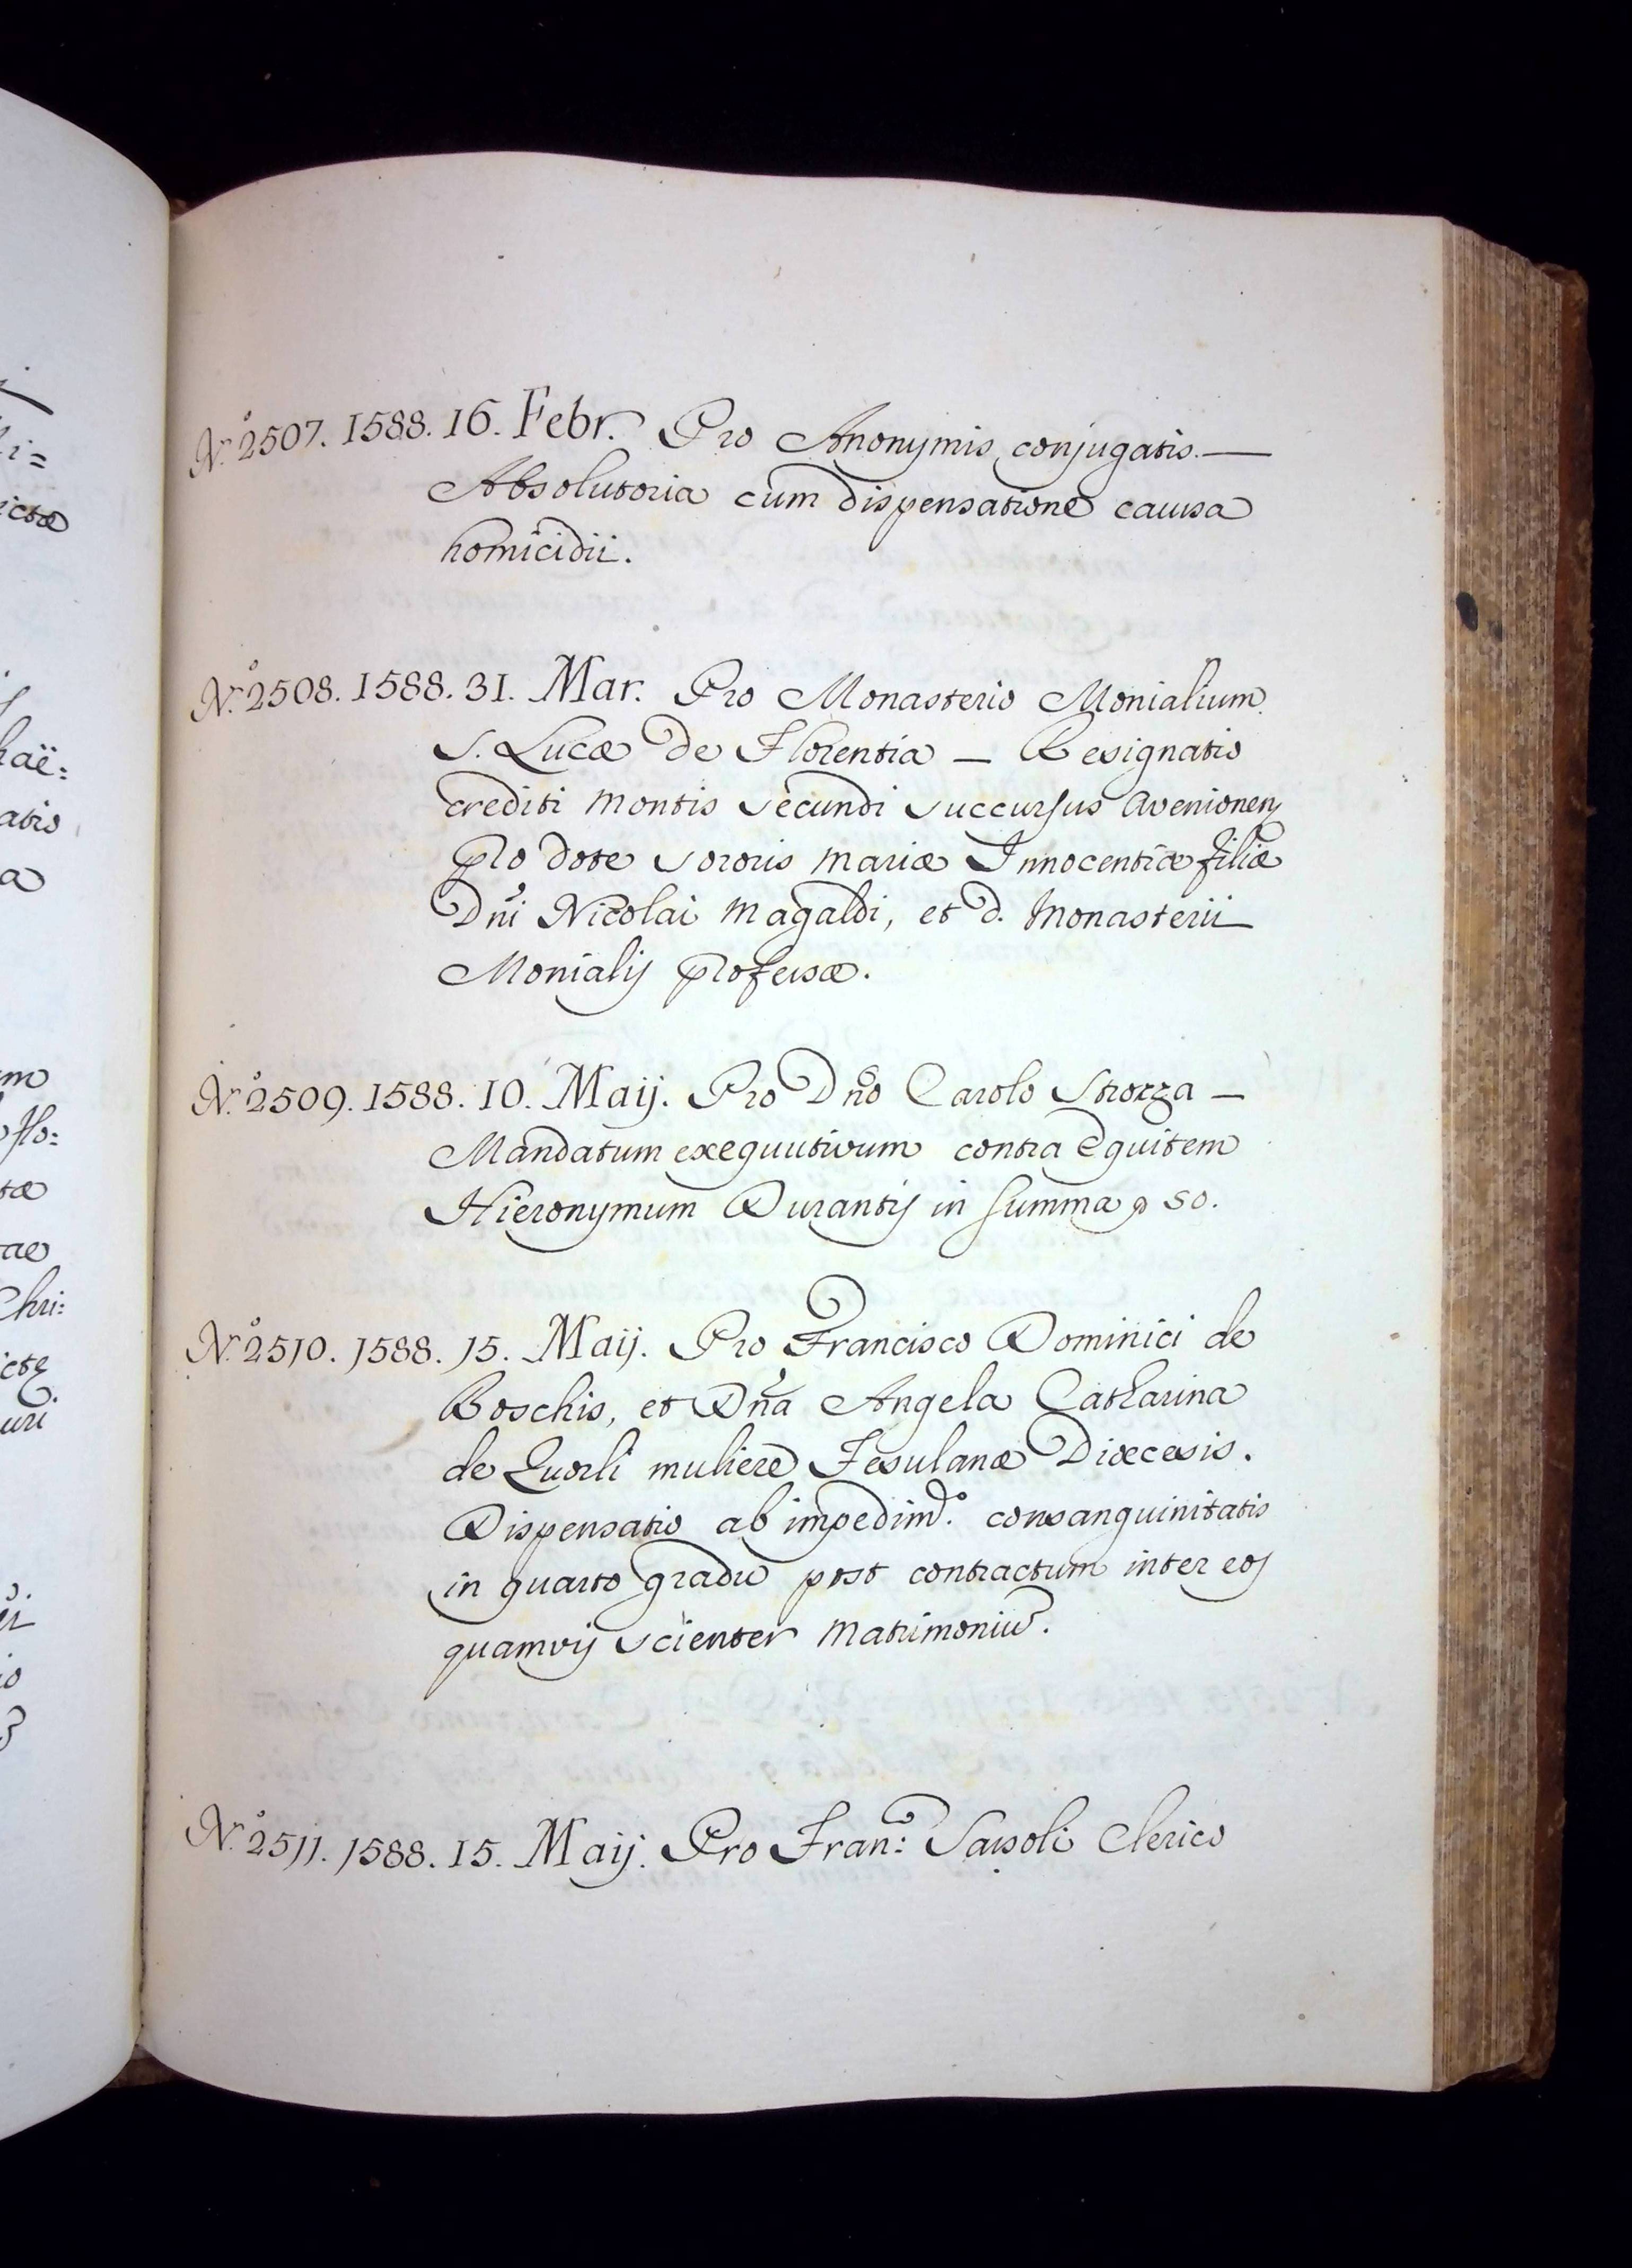 N.º 2507. 1588. 16. Febr. Pro Anonymis conjugatis. —
Absolutoria cum dispensatione causa
homicidii.
N.º 2508. 1588. 31. Mar. Pro Monasterio Monialium
S. Lucæ de Florentia — Resignatio
crediti Montis secundi succursus Avenionens
pro dote sororis Mariæ Innocentiæ filiæ
Dñi Nicolai Magaldi, et d. Monasterii
Monialis professæ.
N.º 2509. 1588. 10. Maij. Pro Dño Carolo Strozza —
Mandatum exequutivum contra Equitem
Hieronymum Durantis in summa 50.
N.º 2510. 1588. 15. Maij. Pro Francisco Dominici de
Boschis, et Dña Angela Catharina
de Quorli muliere Fesulanæ Diæcesis.
Dispensatio ab impedimº. consanguinitatis
in quarto gradu post contractum inter eos
quamvis scienter Matrimoniũ.
N.º 2511. 1588. 15. Maij. Pro Fran: Sassoli Clerico